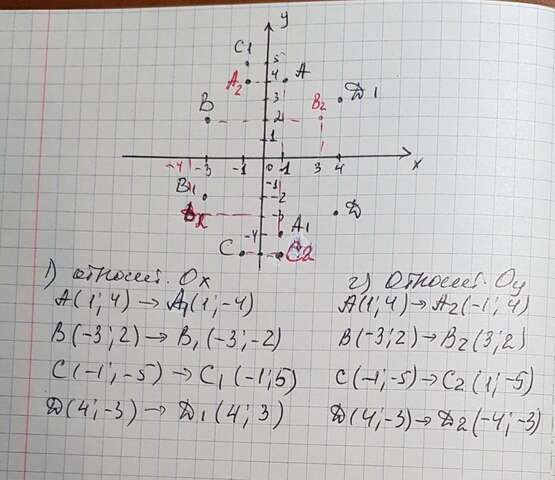 y
C1
5
A2
4
A
3
B2
Д1
B
2
1
-4
-3
-1
0
1
3
4
x
B1
-1
-2
Д2
-3
Д
A1
-4
C
C2
1) относит. Ox
A(1;4) → A1(1;-4)
B(-3;2) → B1(-3;-2)
C(-1;-5) → C1(-1;5)
Д(4;-3) → Д1(4;3)
2) Относит. Oy
A(1;4) → A2(-1;4)
B(-3;2) → B2(3;2)
C(-1;-5) → C2(1;-5)
Д(4;-3) → Д2(-4;-3)